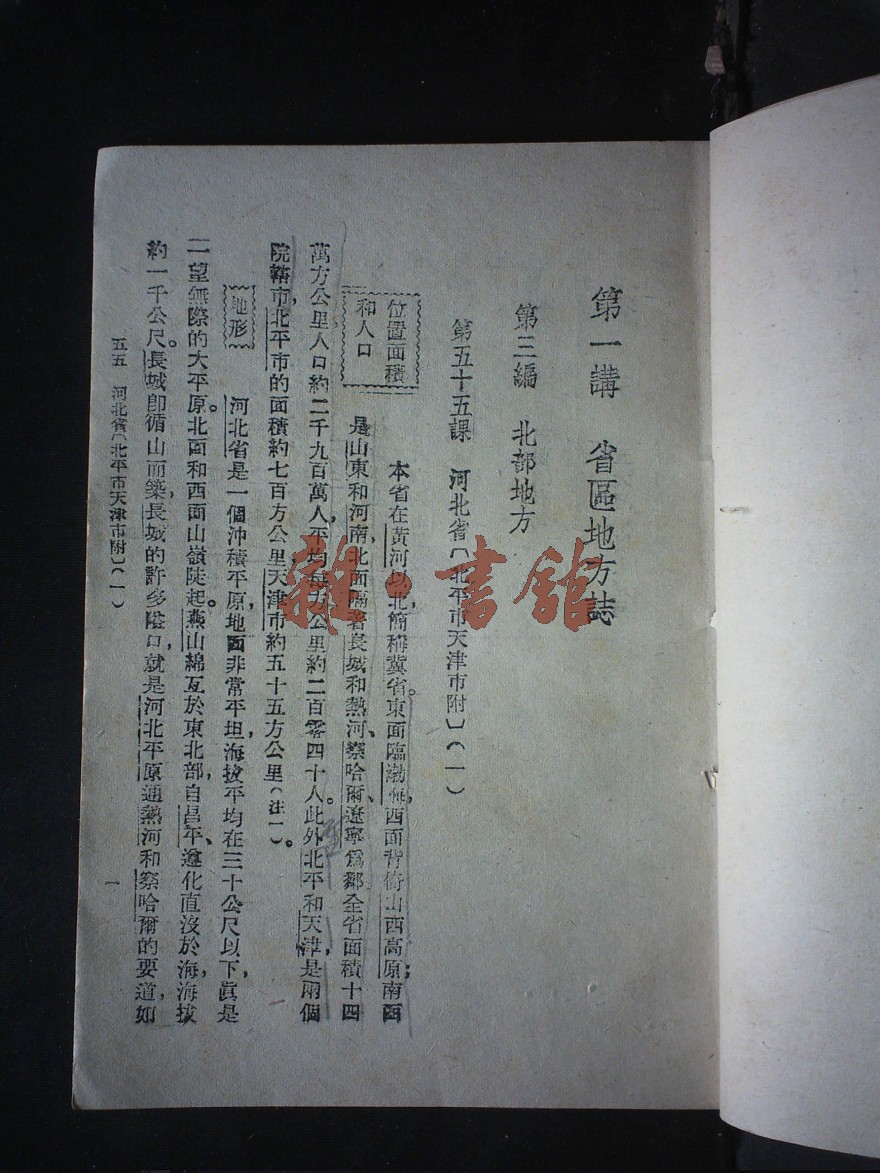 第一講　省區地方誌
第三編　北部地方
第五十五課　河北省〔北平市天津市附〕(一)
位置面積
和人口
本省在黃河以北，簡稱冀省。東面臨渤海，西面背倚山西高原；南面
是山東和河南，北面隔著長城和熱河、察哈爾、遼寧爲鄰全省面積十四
萬方公里，人口約二千九百萬人，平均每方公里約二百零四十人。此外北平和天津，是兩個
院轄市，北平市的面積約七百方公里，天津市約五十五方公里(注一)。
地形
河北省是一個沖積平原，地面非常平坦，海拔平均在三十公尺以下，眞是
一望無際的大平原。北面和西面山嶺陡起。燕山綿互於東北部，自昌平、遵化直沒於海，海拔
約一千公尺。長城卽循山而築，長城的許多隘口，就是河北平原通熱河和察哈爾的要道，如
五五　河北省〔北平市天津市附〕(一)
一
雜·書館